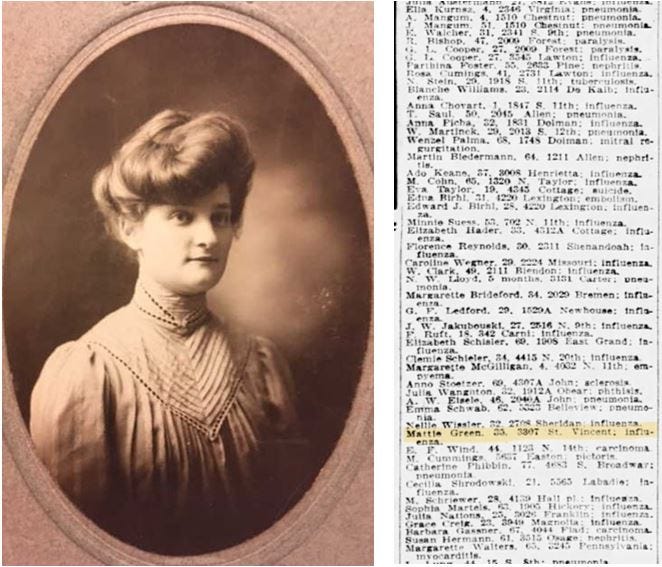 Ella Kurns, 4, 2346 Virginia; pneumonia.
A. Mangum, 4, 1510 Chestnut; pneumonia.
J. Mangum, 51, 1510 Chestnut; pneumonia.
E. Walcher, 31, 2341 S. 9th; pneumonia.
R. Bishop, 47, 2009 Forest; paralysis.
G. L. Cooper, 27, 2009 Forest; paralysis.
G. L. Cooper, 27, 3545 Lawton; influenza.
Parthina Foster, 55, 2633 Pine; nephritis.
Rosa Cumings, 41, 2731 Lawton; influenza.
N. Stein, 29, 1918 S. 11th; tuberculosis.
Blanche Williams, 23, 2114 De Kalb; influ-
enza.
Anna Chovart, 1, 1847 S. 11th; influenza.
T. Saul, 50, 2045 Allen; pneumonia.
Anna Picha, 32, 1831 Dolman; influenza.
W. Martinek, 29, 2013 S. 12th; pneumonia.
Wenzel Palma, 68, 1748 Dolman; mitral re-
gurgitation.
Martin Biedermann, 64, 1211 Allen; nephri-
tis.
Ado Keane, 37, 3008 Henrietta; influenza.
M. Cohn, 65, 1320 N. Taylor; influenza.
Eva Taylor, 19, 4345 Cottage; suicide.
Edna Birhl, 31, 4220 Lexington; embolism.
Edward J. Birhl, 28, 4220 Lexington; influen-
za.
Minnie Suess, 53, 702 N. 11th; influenza.
Elizabeth Hader, 33, 4312A Cottage; influ-
enza.
Florence Reynolds, 30, 2311 Shenandoah; in-
fluenza.
Caroline Wegner, 29, 2224 Missouri; influenza.
W. Clark, 49, 2111 Biendon; influenza.
N. W. Lloyd, 5 months, 3131 Carter; pneu-
monia.
Margarette Brideford, 34, 2029 Bremen; influ-
enza.
G. F. Ledford, 29, 1529A Newhouse; influ-
enza.
J. W. Jakubouski, 27, 2516 N. 9th; influenza.
F. Ruft, 18, 342 Carni; influenza.
Elizabeth Schisler, 69, 1908 East Grand; in-
fluenza.
Clemie Schieler, 34, 4415 N. 20th; influenza.
Margarette McGilligan, 4, 4032 N. 11th; em-
pyema.
Anno Stoetzer, 69, 4307A John; sclerosis.
Julia Wangnton, 32, 1912A Obear; phthisis.
A. W. Eisele, 46, 2040A John; pneumonia.
Emma Schwab, 62, 5323 Belleview; pneumo-
nia.
Nellie Wissler, 32, 2708 Sheridan; influenza.
Mattie Green, 35, 3307 St. Vincent; influ-
enza.
E. F. Wind, 44, 1123 N. 14th; carcinoma.
M. Cummings, 5637 Easton; pictoris.
Catherine Phibbin, 77, 4683 S. Broadway;
pneumonia.
Cecilia Shrodowski, 21, 5565 Labadie; in-
fluenza.
M. Schriewer, 28, 4139 Hall pl.; influenza.
Sophia Martels, 63, 1905 Hickory; influenza.
Julia Nations, 25, 3026 Franklin; influenza.
Grace Creig, 23, 3949 Magnolia; influenza.
Barbara Gassner, 67, 4044 Flad; carcinoma.
Susan Hermann, 61, 3515 Osage; nephritis.
Margarette Walters, 65, 3245 Pennsylvania;
myocarditis.